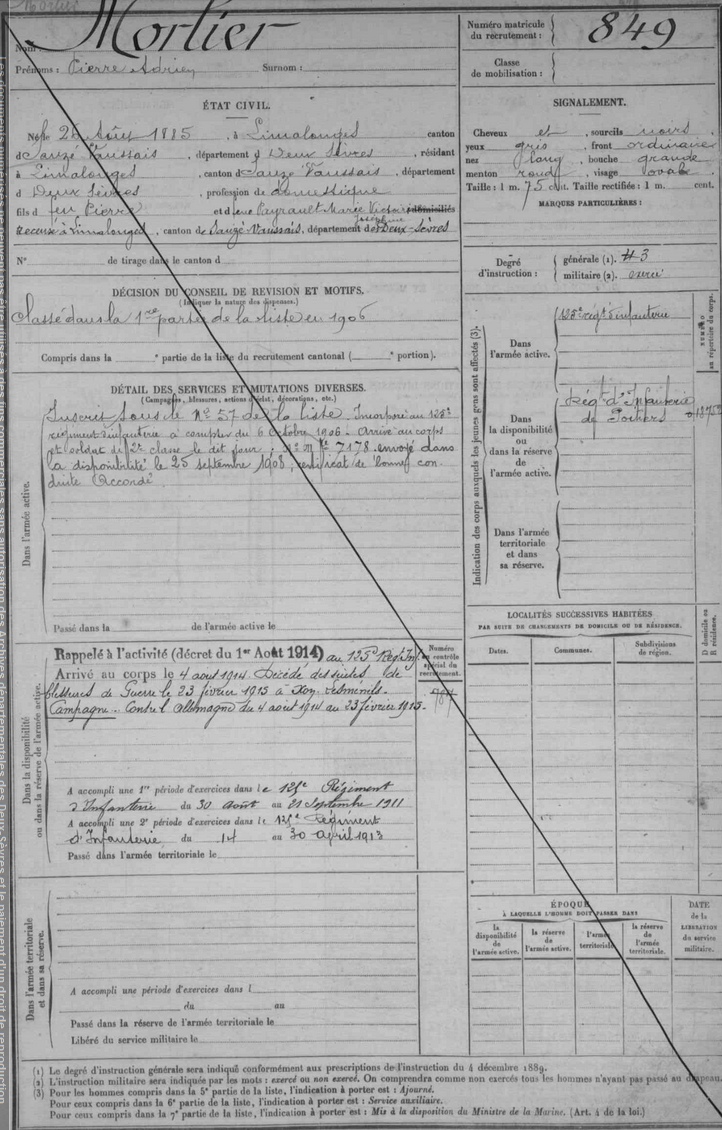 Mortier
Nom :
Prénoms : Pierre Adrien Surnom :
Numéro matricule du recrutement : 849
Classe de mobilisation :
ÉTAT CIVIL.
Né le 25 Août 1885, à Limalonges canton
d Sauzé Vaussais, département d Deux Sèvres, résidant
à Limalonges, canton d Sauzé Vaussais, département
d Deux Sèvres, profession de domestique
fils d feu Pierre et d feue Peyrault Marie Victoire domiciliés
Joséphine
Recensé à Limalonges, canton de Sauzé-Vaussais, département des Deux-Sèvres
N° de tirage dans le canton d
SIGNALEMENT.
Cheveux et , sourcils noirs
yeux gris , front ordinaire
nez long , bouche grande
menton rond , visage ovale
Taille : 1 m. 75 cent. Taille rectifiée : 1 m. cent.
MARQUES PARTICULIÈRES :
Degré d'instruction : générale (1). 3
militaire (2). exercé
DÉCISION DU CONSEIL DE REVISION ET MOTIFS.
(Indiquer la nature des dispenses.)
Classé dans la 1re partie de la liste en 1906
Compris dans la e partie de la liste du recrutement cantonal ( e portion).
DÉTAIL DES SERVICES ET MUTATIONS DIVERSES.
(Campagnes, blessures, actions d'éclat, décorations, etc.)
Dans l'armée active.
Inscrit sous le N° 57 de la liste. Incorporé au 125e
régiment d'infanterie à compter du 6 Octobre 1906. Arrivé au corps
et soldat de 2e classe le dit jour ; N° Mle 7178. envoyé dans
la disponibilité le 25 septembre 1908, certificat de bonne con
duite Accordé
Passé dans la de l'armée active le
Indication des corps auxquels les jeunes gens sont affectés (3).
NUMÉRO au répertoire du corps.
Dans l'armée active.
125e rég. d'infanterie
Dans la disponibilité ou dans la réserve de l'armée active.
Régt d'Infanterie
de Poitiers
Dans l'armée territoriale et dans sa réserve.
Dans la disponibilité ou dans la réserve de l'armée active.
Rappelé à l'activité (décret du 1er Août 1914) au 125e Régt Inf.
Arrivé au corps le 4 août 1914. Décédé des suites de
blessures de Guerre le 23 février 1915 à
Campagne. Contre l'Allemagne du 4 août 1914 au 23 février 1915.
Numéro au contrôle spécial du recrutement.
A accompli une 1re période d'exercices dans le 125e Régiment
d'Infanterie du 30 Août au 21 Septembre 1911
A accompli une 2e période d'exercices dans le 125e Régiment
d'Infanterie du 14 au 30 avril 1913
Passé dans l'armée territoriale le
LOCALITÉS SUCCESSIVES HABITÉES
PAR SUITE DE CHANGEMENTS DE DOMICILE OU DE RÉSIDENCE.
Dates. Communes. Subdivisions de région. D domicile ou R résidence.
Dans l'armée territoriale et dans sa réserve.
A accompli une période d'exercices dans l
du au
Passé dans la réserve de l'armée territoriale le
Libéré du service militaire le
ÉPOQUE
À LAQUELLE L'HOMME DOIT PASSER DANS
la disponibilité de l'armée active. la réserve de l'armée active. l'armée territoriale. la réserve de l'armée territoriale.
DATE de la LIBÉRATION du service militaire.
(1) Le degré d'instruction générale sera indiqué conformément aux prescriptions de l'instruction du 4 décembre 1889.
(2) L'instruction militaire sera indiquée par les mots : exercé ou non exercé. On comprendra comme non exercés tous les hommes n'ayant pas passé au drapeau.
(3) Pour les hommes compris dans la 5e partie de la liste, l'indication à porter est : Ajourné.
Pour ceux compris dans la 6e partie de la liste, l'indication à porter est : Service auxiliaire.
Pour ceux compris dans la 7e partie de la liste, l'indication à porter est : Mis à la disposition du Ministre de la Marine. (Art. 4 de la loi.)